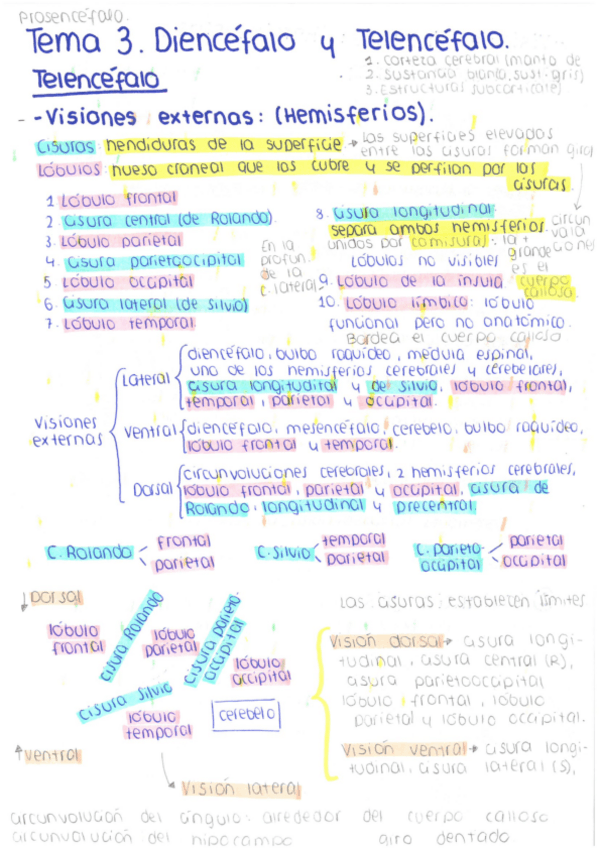 Prosencéfalo.
Tema 3. Diencéfalo y Telencéfalo.
Telencéfalo
1. corteza cerebral (manto de
2. sustancia blanca, sust. gris)
3. Estructural subcorticate)
- - Visiones externas: (Hemisferios).
Cisuras: hendiduras de la superficie → Las superficies elevadas
entre las cisuras forman gira
Lóbulos: hueso craneal que los cubre y se perfilan por las
cisuras.
1 Lóbulo frontal
2. cisura central (de Rolando).
3. Lóbulo parietal
4. cisura parietooccipital
5 Lóbulo occipital
6. cisura lateral (de silvio)
7. Lóbulo temporal
En la
profun.
de la
c. lateral
8. cisura longitudinal
separa ambos hemisferios.
unidos por comisuras: la +
grande
es el
cuerpo
calloso.
circun
vala
ciones
Lóbulos no visibles
9. Lóbulo de la ínsula
10. Lóbulo límbico: lóbulo
funcional pero no anatómico.
Bordea el cuerpo calloso
Visiones
externas
Lateral
diencéfalo, bulbo raquídeo, médula espinal,
uno de los hemisferios cerebrales y cerebelares,
cisura longitudital y de silvio, lóbulo frontal,
temporal, parietal y occipital.
Ventral
diencéfalo, mesencéfalo, cerebelo, bulbo raquídeo,
lóbulo frontal y temporal.
Dorsal
circunvoluciones cerebrales, 2 hemisferios cerebrales,
lóbulo frontal, parietal y occipital, cisura de
Rolando, longitudinal y precentral
C. Rolando
frontal
parietal
C. Silvio
temporal
parietal
C. parieto-
occipital
parietal
occipital
↓ Dorsal
lóbulo
frontal
cisura Rolando
lóbulo
parietal
cisura parieto.
occipital
lóbulo
occipital
cisura silvio
lóbulo
temporal
cerebelo
↑ ventral
→ Visión lateral
Las cisuras: establecen límites
Visión dorsal → cisura longi-
tudinal, cisura central (R),
cisura parietooccipital
lóbulo frontal, lóbulo
parietal y lóbulo occipital.
Visión ventral → cisura longi-
tudinal, cisura lateral (s),
circunvolución del cíngulo: alrededor del cuerpo calloso
circunvolución del hipocampo giro dentado